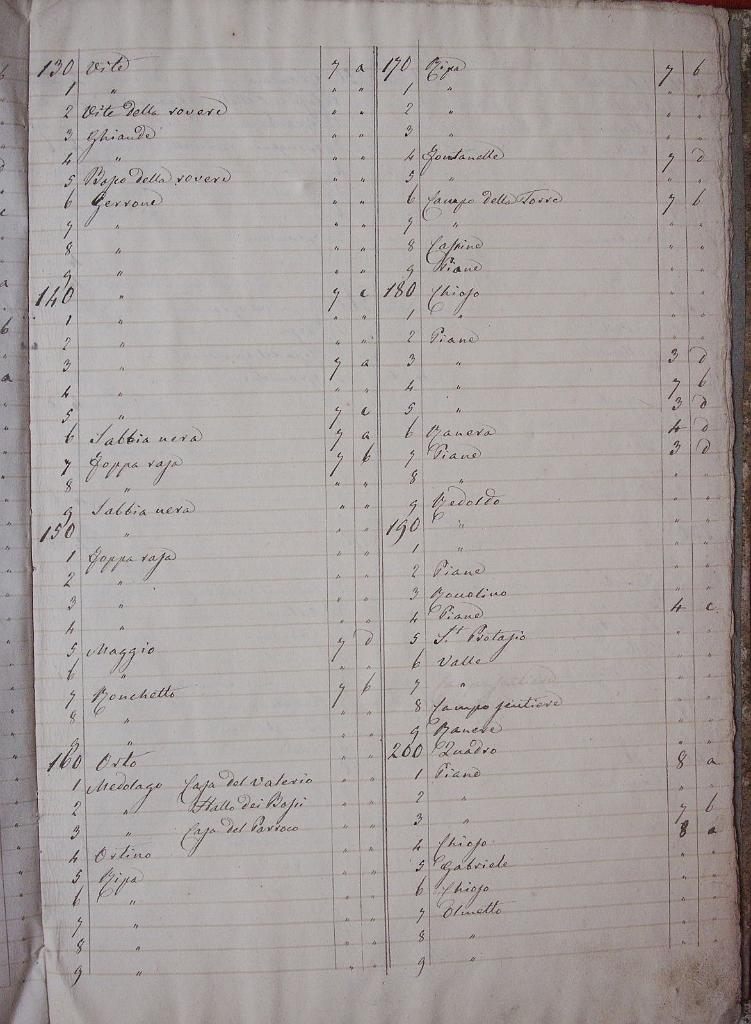 130 Vite 7 a
1 " " "
2 Vite della rovere " "
3 Ghiande " "
4 " " "
5 Basso della rovere " "
6 Gerrone " "
7 " " "
8 " " "
9 " " "
140 " 7 c
1 " " "
2 " " "
3 " 7 a
4 " " "
5 " 7 c
6 Sabbia nera 7 a
7 Joppa rasa 7 b
8 " " "
9 Sabbia nera " "
150 " " "
1 Joppa rasa " "
2 " " "
3 " " "
4 " " "
5 Maggio 7 d
6 " " "
7 Ronchetto 7 b
8 " " "
9 " " "
160 Orto " "
1 Medolago Casa del Valerio " "
2 " Stallo dei Bassi " "
3 " Casa del Parroco " "
4 Ortino " "
5 Ripa " "
6 " " "
7 " " "
8 " " "
9 " " "
170 Ripa 7 b
1 " " "
2 " " "
3 " " "
4 Fontanelle 7 d
5 " " "
6 Campo della Torre 7 b
7 " " "
8 Cassine " "
9 Piane " "
180 Chioso " "
1 " " "
2 Piane " "
3 " 3 d
4 " 7 b
5 " 3 d
6 Ranera 4 d
7 Piane 3 d
8 " " "
9 Redoldo " "
190 " " "
1 " " "
2 Piane " "
3 Roncolino " "
4 Piane 4 c
5 S.t Protasio " "
6 Valle " "
7 " " "
8 Campo sentiere " "
9 Ranere " "
200 Quadro " "
1 Piane 8 a
2 " " "
3 " 7 b
4 Chioso 8 a
5 Gabriele " "
6 Chioso " "
7 Olmetto " "
8 " " "
9 " " "